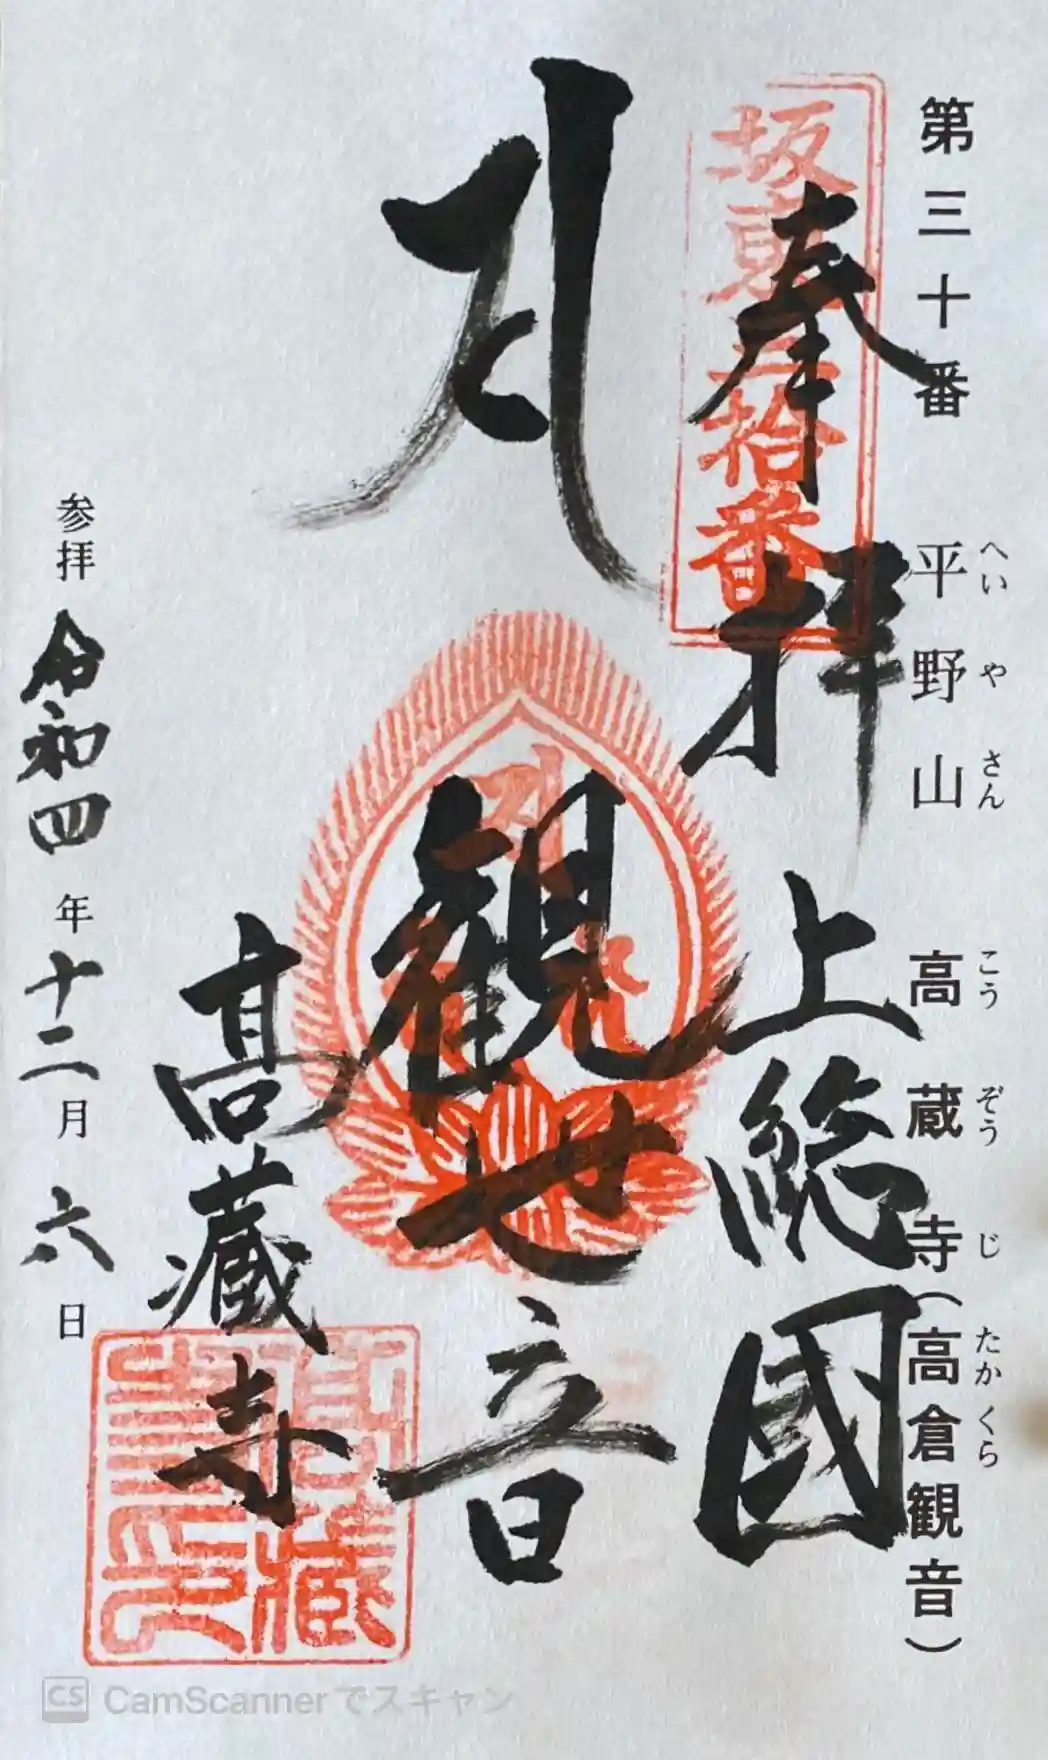 第三十番 平野山 高蔵寺(高倉観音)
へい や さん こう ぞう じ たか くら
坂東三拾番
奉拝
上総國
観世音
髙蔵寺
参拝 令和四年十二月六日
CS CamScannerでスキャン